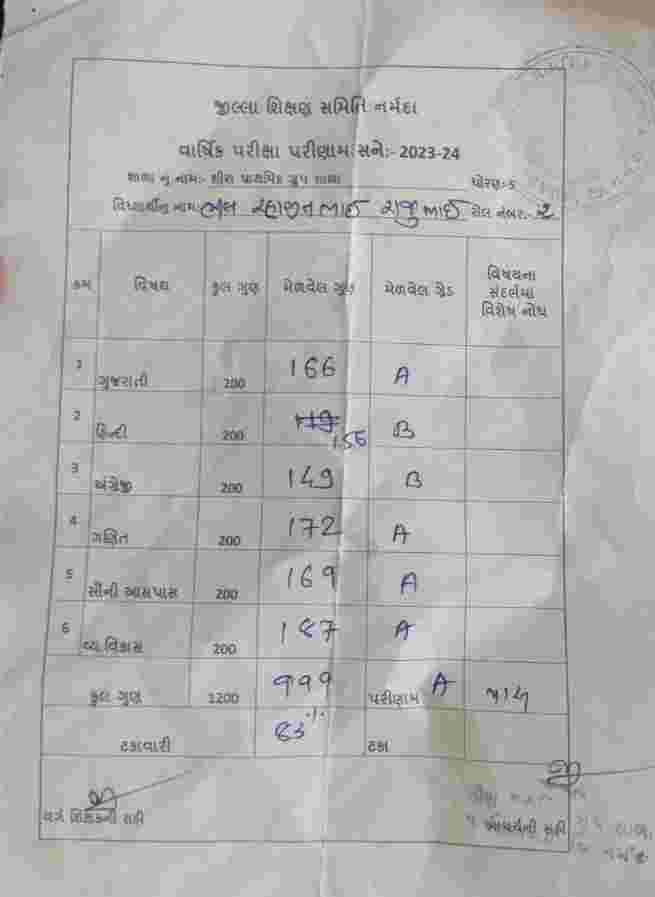 જીલ્લા શિક્ષણ સમિતિ નર્મદા
વાર્ષિક પરીક્ષા પરીણામ સને:- 2023-24
શાળા નુ નામ:- પ્રાથમિક શાળા ધોરણ:-
વિદ્યાર્થીનુ નામ: રાજુભાઈ રોલ નંબર:- 2
ક્રમ વિષય કુલ ગુણ મેળવેલ ગુણ મેળવેલ ગ્રેડ વિષયના સંદર્ભમાં વિશેષ નોંધ
1 ગુજરાતી 200 166 A
2 હિન્દી 200 156 B
3 અંગ્રેજી 200 149 B
4 ગણિત 200 172 A
5 સૌની આસપાસ 200 169 A
6 વ્ય.વિકાસ 200 187 A
કુલ ગુણ 1200 999 પરીણામ A પાસ
ટકાવારી 83% ટકા
વર્ગ શિક્ષકની સહી
આચાર્યની સહી